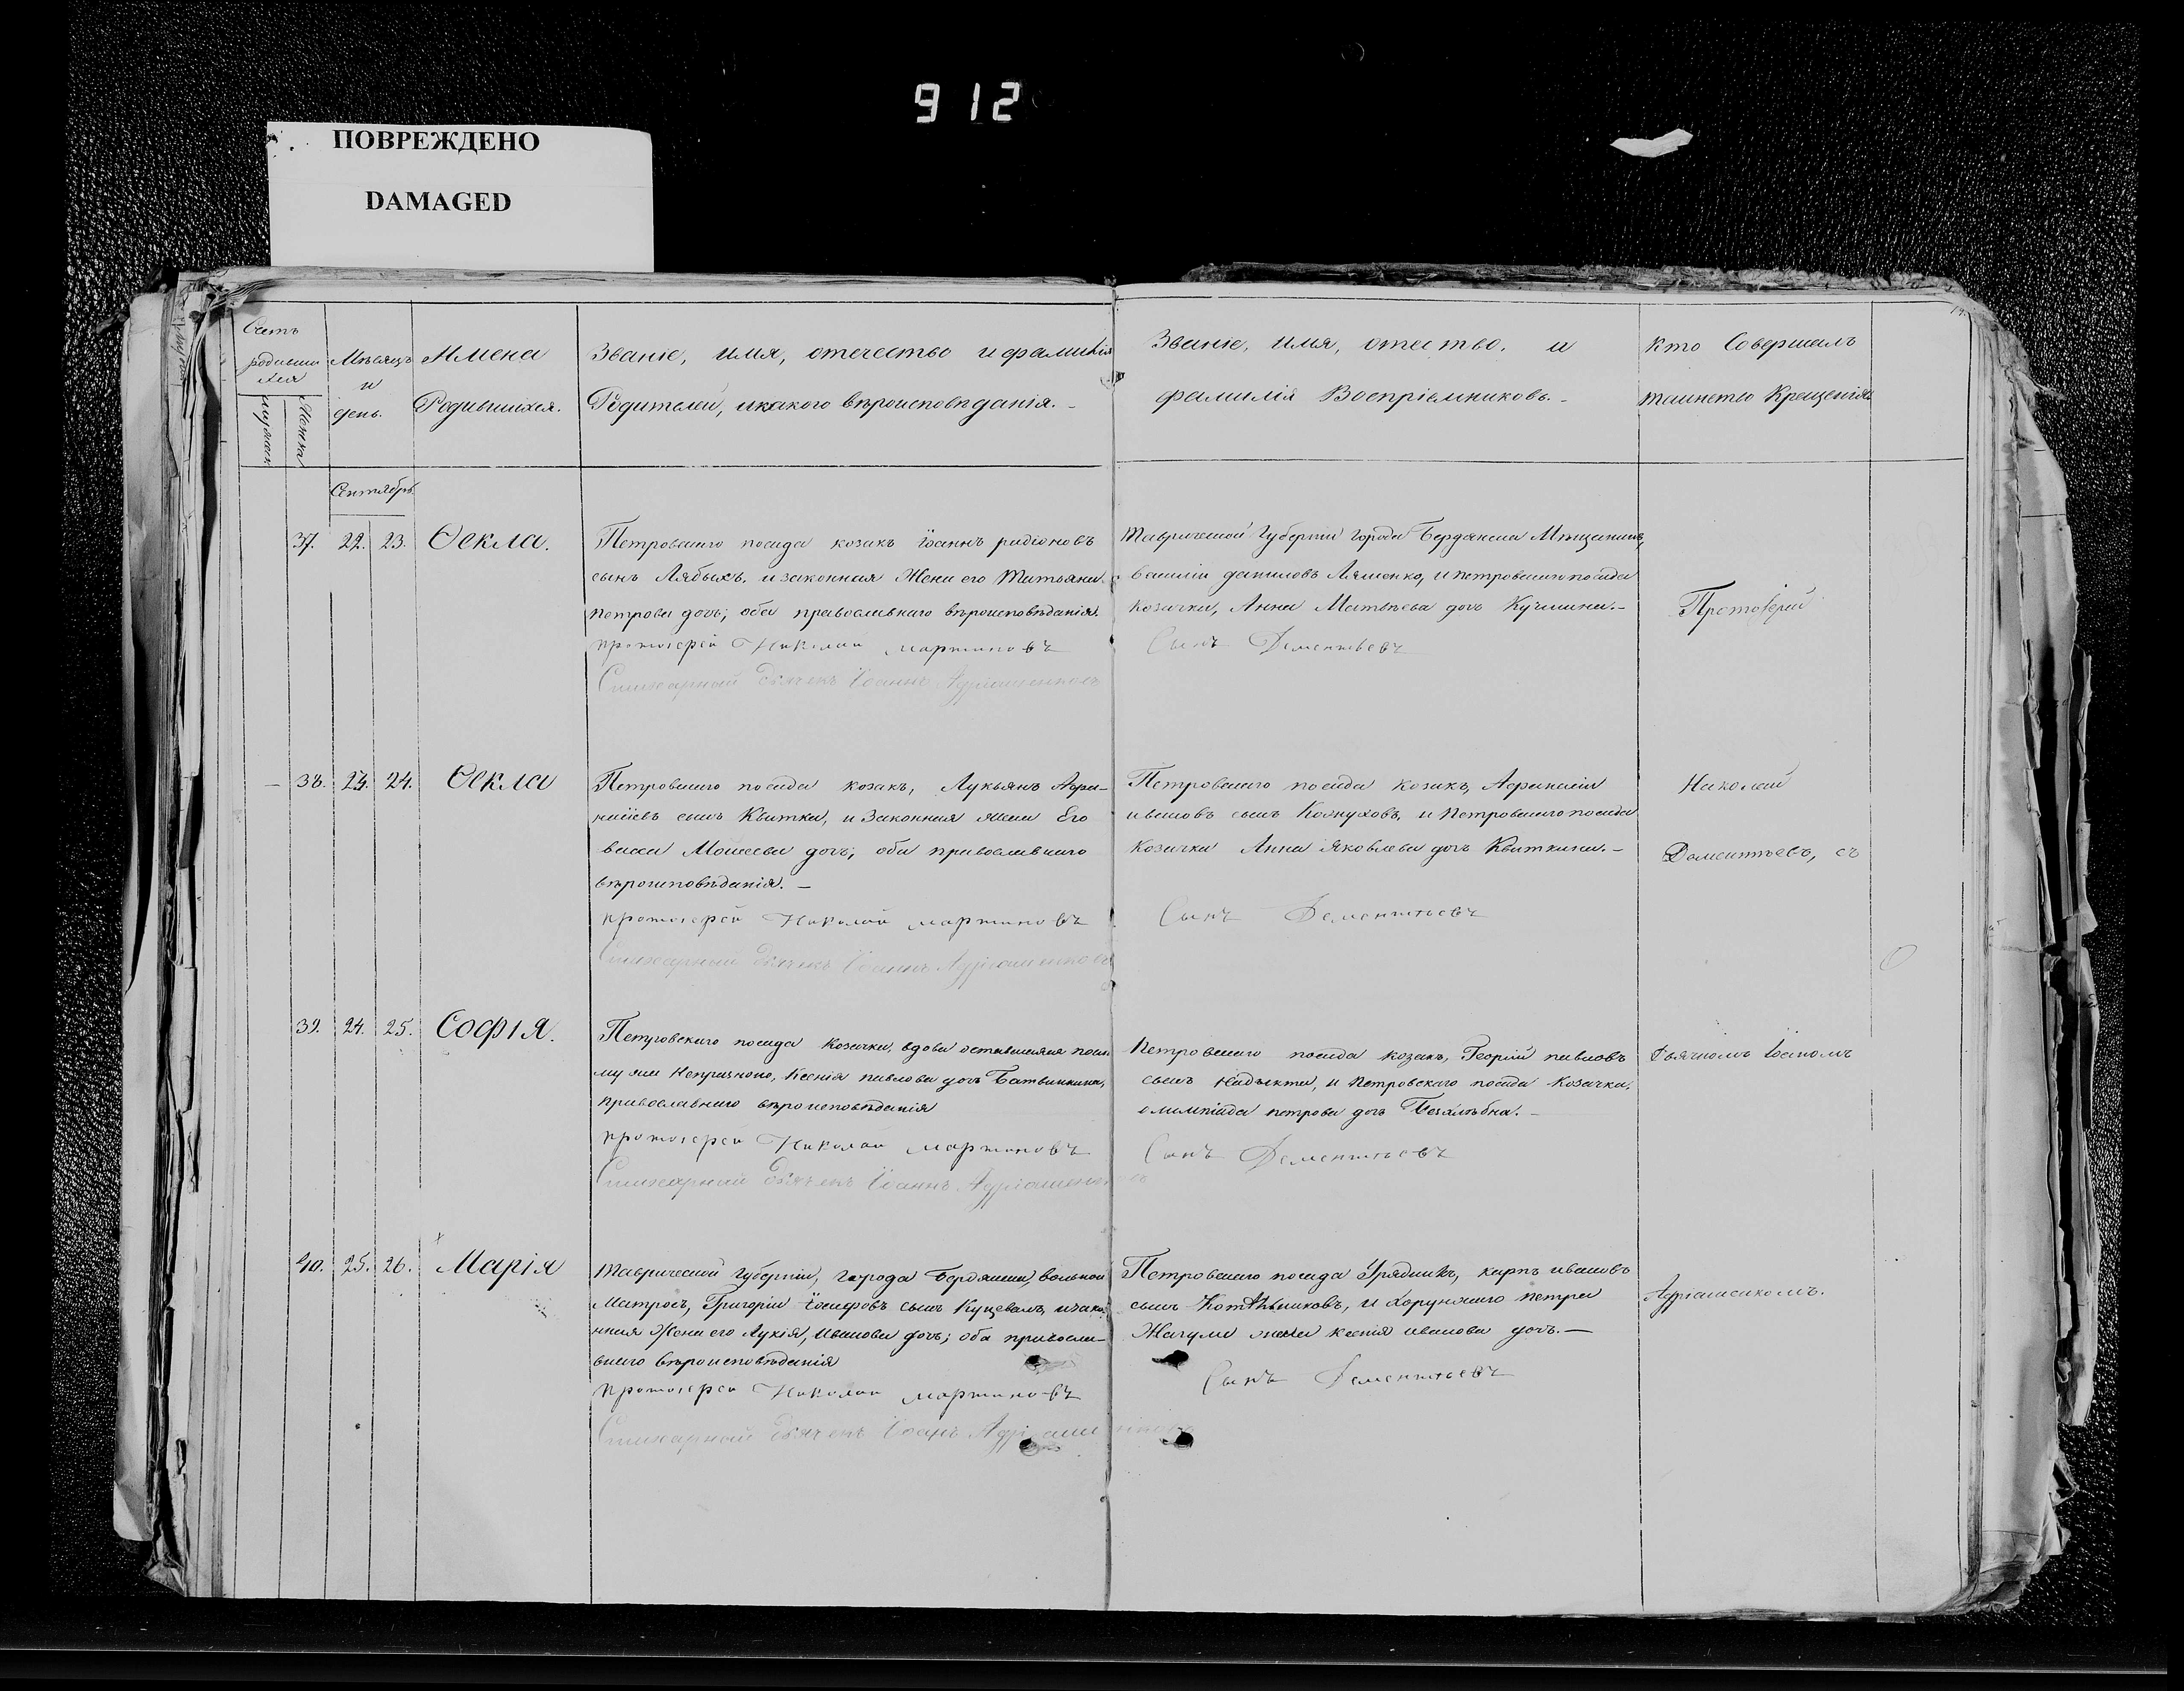 912
ПОВРЕЖДЕНО
DAMAGED
Счетъ родившихся
мужска
Женска
Мѣсяцъ и день.
Имена Родившихся.
Званіе, имя, отечество и фамилія Родителей, и какого вѣроисповѣданія. -
Званіе, имя, отество, и фамилія Воспріемниковъ. -
Кто Совершалъ таинство Крещенія
Сентябрь
37. 22. 23. Ѳекла.
Петровскаго посада козакъ Іоаннъ родіоновъ
сынъ Лябыхъ, и законная Жена его Татьяна
петрова дочь; оба православнаго вѣроисповѣданія.
протоіерей Николай мартиновъ
Стихарный Дьячекъ Іоаннъ
Таврической Губерніи города Бердянска Мѣщанинъ,
василій даниловъ Ляшенко, и петровскаго посада
козачка, Анна Матвѣева дочь Кучмина. -
Сынъ Дементьевъ
Протоіерей
38. 23. 24. Ѳекла
Петровскаго посада козакъ, Лукьянъ
сынъ Квитка, и Законная жена Его
васса Моисеева дочь; оба православнаго
вѣроисповѣданія. -
протоіерей Николай мартиновъ
Стихарный Дьячекъ Іоаннъ
Петровскаго посада козакъ, Афанасій
ивановъ сынъ Кожуховъ, и Петровскаго посада
козачка Анна Яковлева дочь Квиткина. -
Сынъ Дементьевъ
Николай
Дементьевъ, съ
39. 24. 25. Софія.
Петровскаго посада Козачка, вдова оставшаяся по
мужи Ксенія павлова дочь Батвинкина,
православнаго вѣроисповѣданія
протоіерей Николай мартиновъ
Стихарный Дьячекъ Іоаннъ
Петровскаго посада козакъ, Георгій павловъ
сынъ и Петровскаго посада Козачка,
олимпіада петрова дочь Безхлѣбна. -
Сынъ Дементьевъ
Дьячкомъ Іоаномъ
40. 25. 26. Марія
Таврической Губерніи, Города Бердянска, вольной
Матросъ, Григорій Іосифовъ сынъ Куцеваль, и зако-
нная Жена его Лукія, Иванова дочь; оба правосла-
внаго вѣроисповѣданія
протоіерей Николай мартиновъ
Стихарный Дьячекъ Іоанъ
Петровскаго посада Урядникъ, карпъ ивановъ
сынъ и Хорунжаго петра
Жагумы жена ксенія иванова дочь. -
Сынъ Дементьевъ